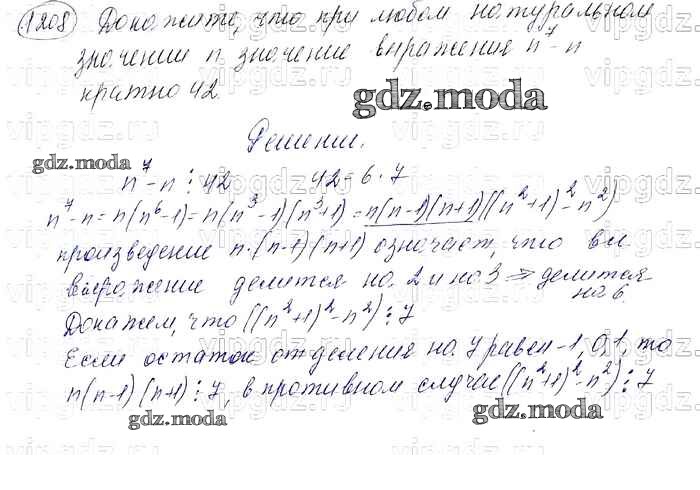 1208 Докажите, что при любом натуральном
значении n значение выражения n⁷-n
кратно 42.
gdz.moda
Решение.
gdz.moda
n⁷-n ⋮ 42 42=6·7
n⁷-n=n(n⁶-1)=n(n³-1)(n³+1)=n(n-1)(n+1)((n²+1)²-n²)
произведение n·(n-1)(n+1) означает, что вы
выражение делится на 2 и на 3 ⇒ делится
на 6.
Докажем, что ((n²+1)²-n²) ⋮ 7
Если остаток от деления на 7 равен -1, 0, 1, то
n(n-1)(n+1) ⋮ 7, в противном случае ((n²+1)²-n²) ⋮ 7
gdz.moda gdz.moda